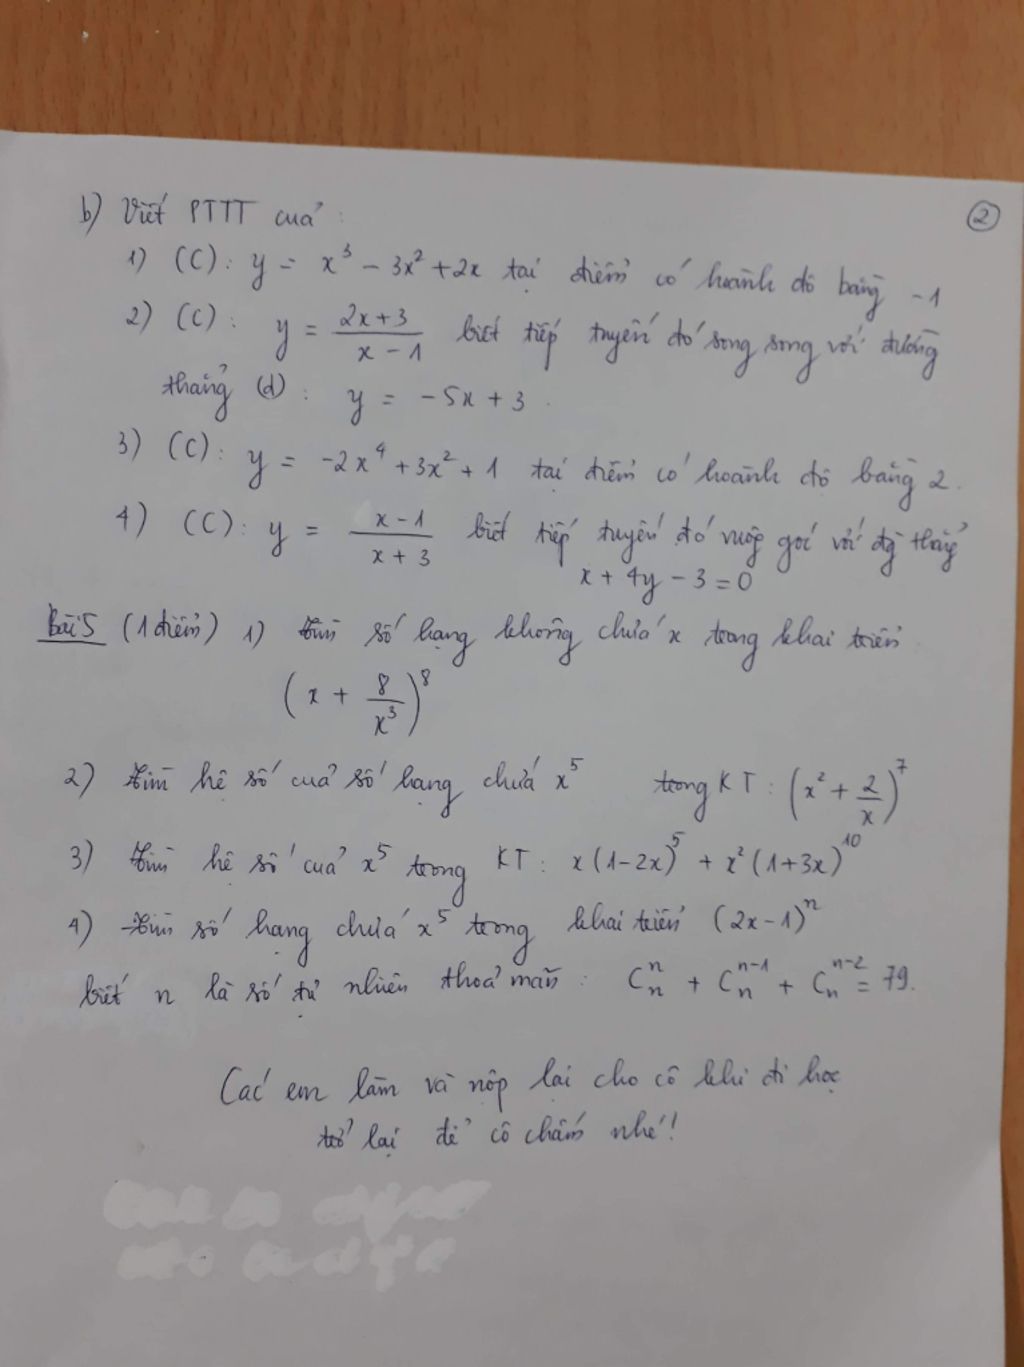 ②
b) Viết PTTT của :
1) (C): y = x³ - 3x² + 2x tại điểm có hoành độ bằng -1
2) (C): y = (2x+3)/(x-1) biết tiếp tuyến đó song song với đường
thẳng (d): y = -5x + 3.
3) (C): y = -2x⁴ + 3x² + 1 tại điểm có hoành độ bằng 2.
4) (C): y = (x-1)/(x+3) biết tiếp tuyến đó vuông góc với đg thẳng
x + 4y - 3 = 0
Bài 5 (1 điểm) 1) Tìm số hạng không chứa x trong khai triển
(x + 8/x³)⁸
2) Tìm hệ số của số hạng chứa x⁵ trong KT : (x² + 2/x)⁷
3) Tìm hệ số của x⁵ trong KT : x(1-2x)⁵ + x²(1+3x)¹⁰
4) Tìm số hạng chứa x⁵ trong khai triển (2x-1)ⁿ
biết n là số tự nhiên thoả mãn : Cₙⁿ + Cₙⁿ⁻¹ + Cₙⁿ⁻² = 79.
Các em làm và nộp lại cho cô khi đi học
trở lại để cô chấm nhé!